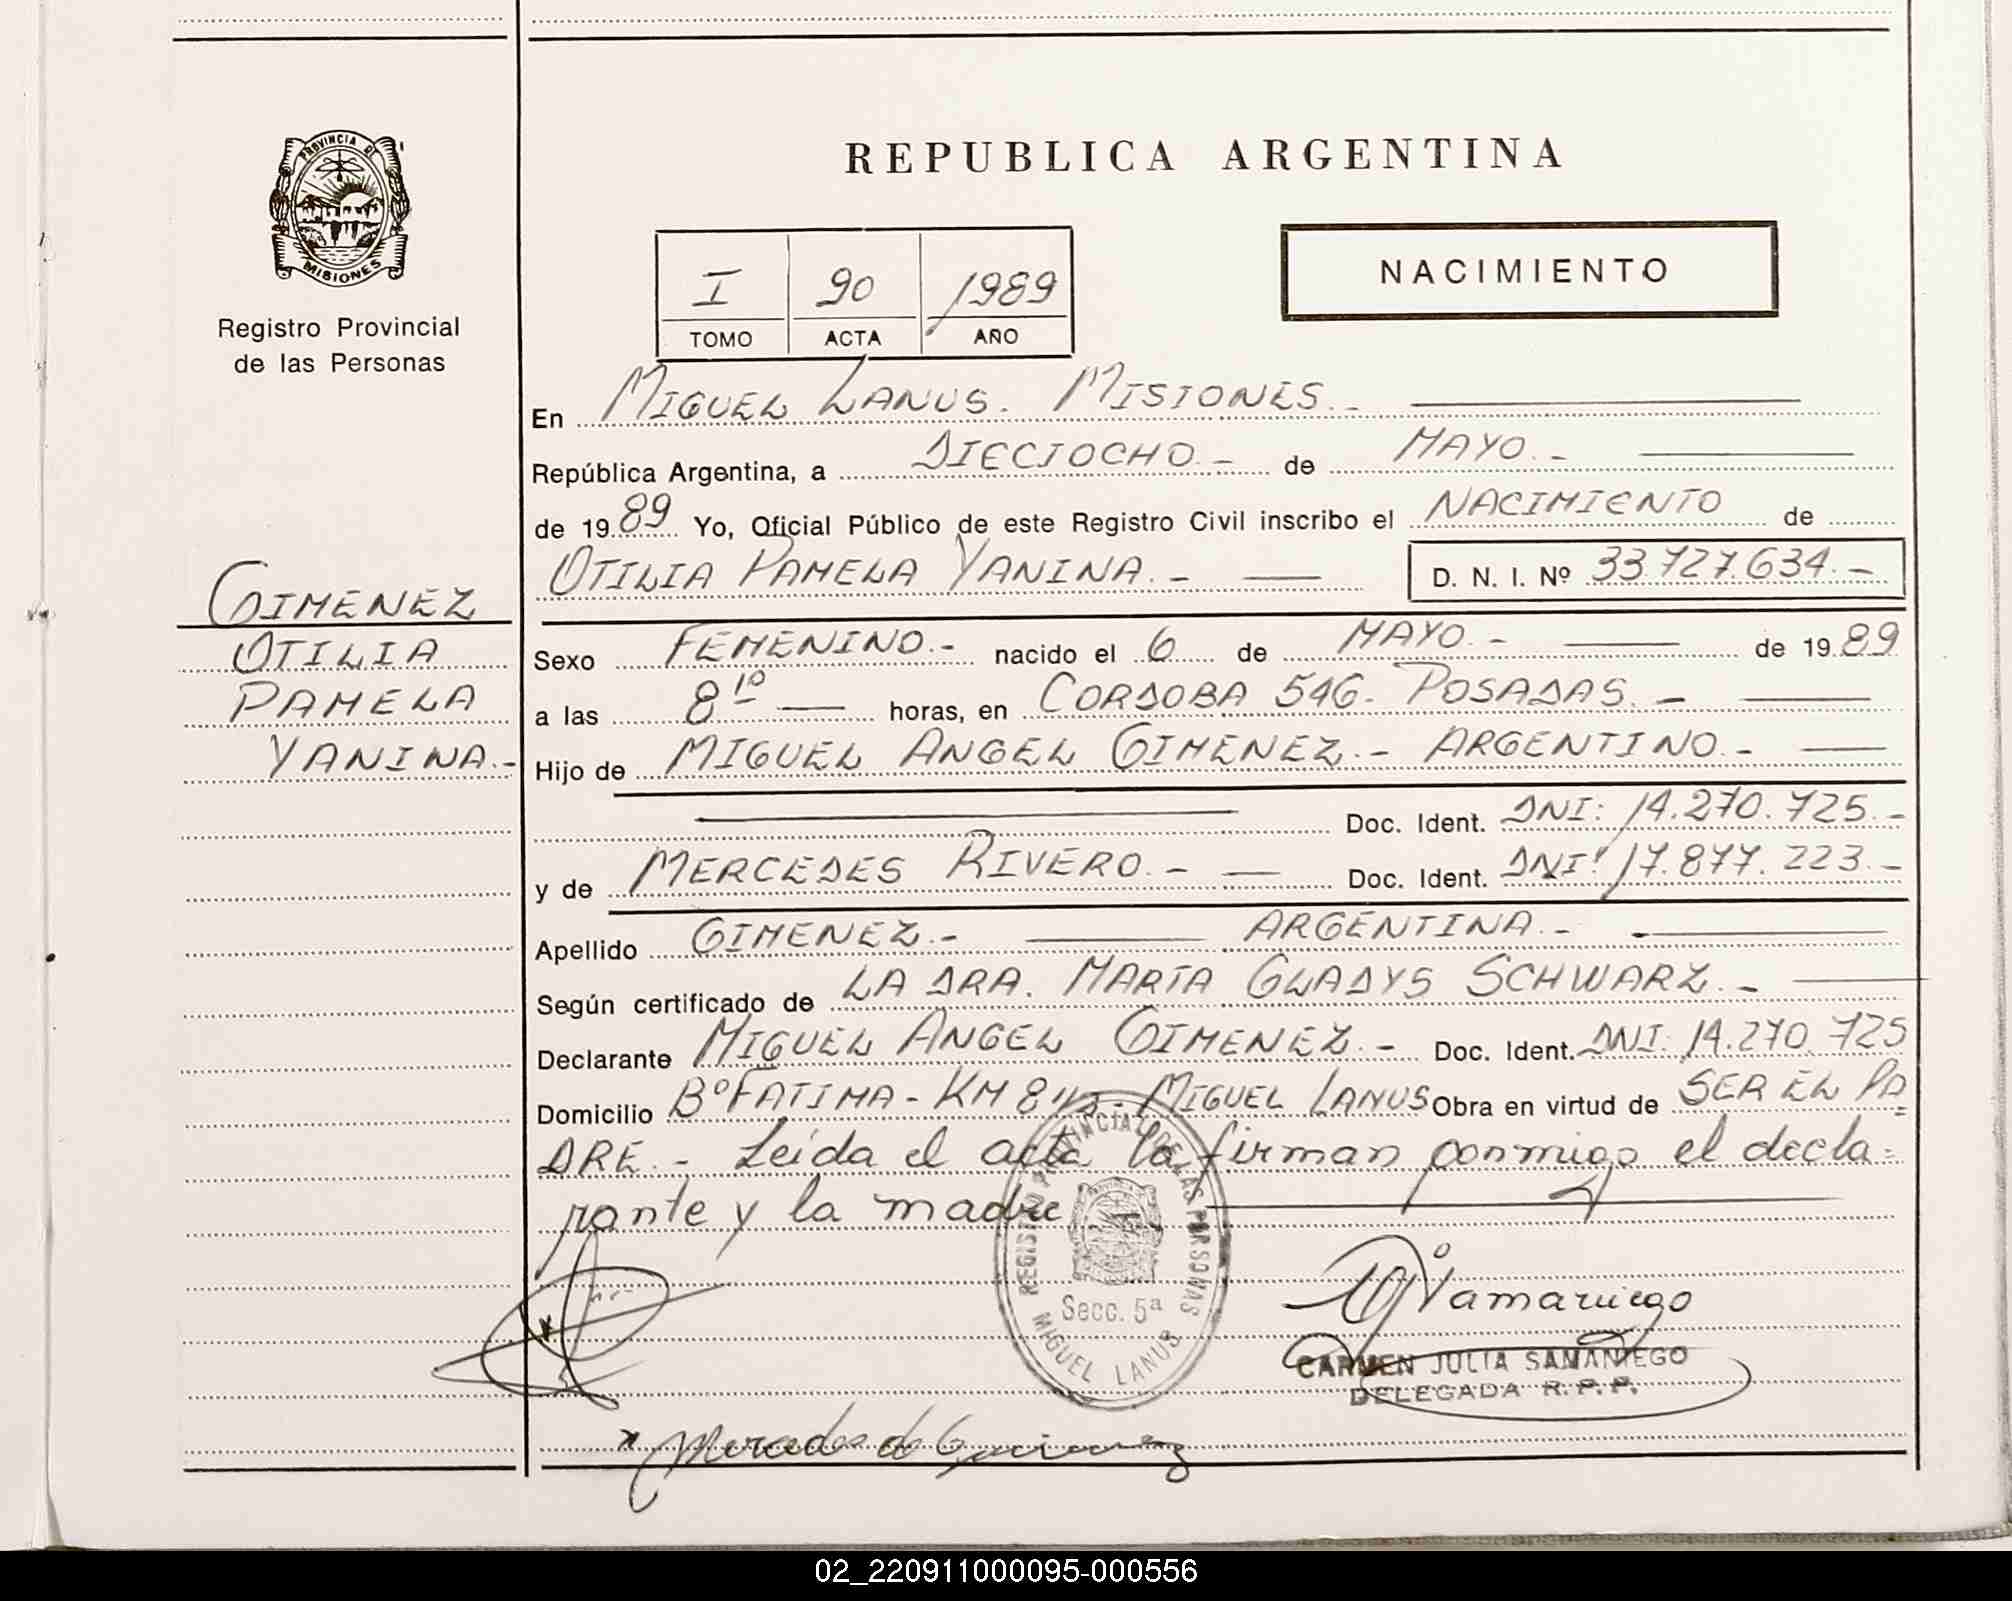 PROVINCIA DE
MISIONES
Registro Provincial
de las Personas
GIMENEZ
OTILIA
PAMELA
YANINA.-
REPUBLICA ARGENTINA
I 90 1989
TOMO ACTA AÑO
NACIMIENTO
En MIGUEL LANUS. MISIONES.-
República Argentina, a DIECIOCHO.- de MAYO.-
de 1989 Yo, Oficial Público de este Registro Civil inscribo el NACIMIENTO de
OTILIA PAMELA YANINA.- D. N. I. Nº 33.727.634.-
Sexo FEMENINO.- nacido el 6 de MAYO.- de 1989
a las 8 10 horas, en CORDOBA 546. POSADAS.-
Hijo de MIGUEL ANGEL GIMENEZ.- ARGENTINO.-
Doc. Ident. DNI: 14.270.725.-
y de MERCEDES RIVERO.- Doc. Ident. DNI: 17.877.223.-
Apellido GIMENEZ.- ARGENTINA.-
Según certificado de LA DRA. MARÍA GLADYS SCHWARZ.-
Declarante MIGUEL ANGEL GIMENEZ.- Doc. Ident. DNI: 14.270.725
Domicilio Bº FATIMA - KM MIGUEL LANUS Obra en virtud de SER EL PA
DRE.- Leída el acta la firman conmigo el decla=
rante y la madre
REGISTRO PROVINCIAL DE LAS PERSONAS
Secc. 5ª
MIGUEL LANUS
Samaniego
CARMEN JULIA SAMANIEGO
DELEGADA R. P. P.
Mercedes de Gimenez
02_220911000095-000556